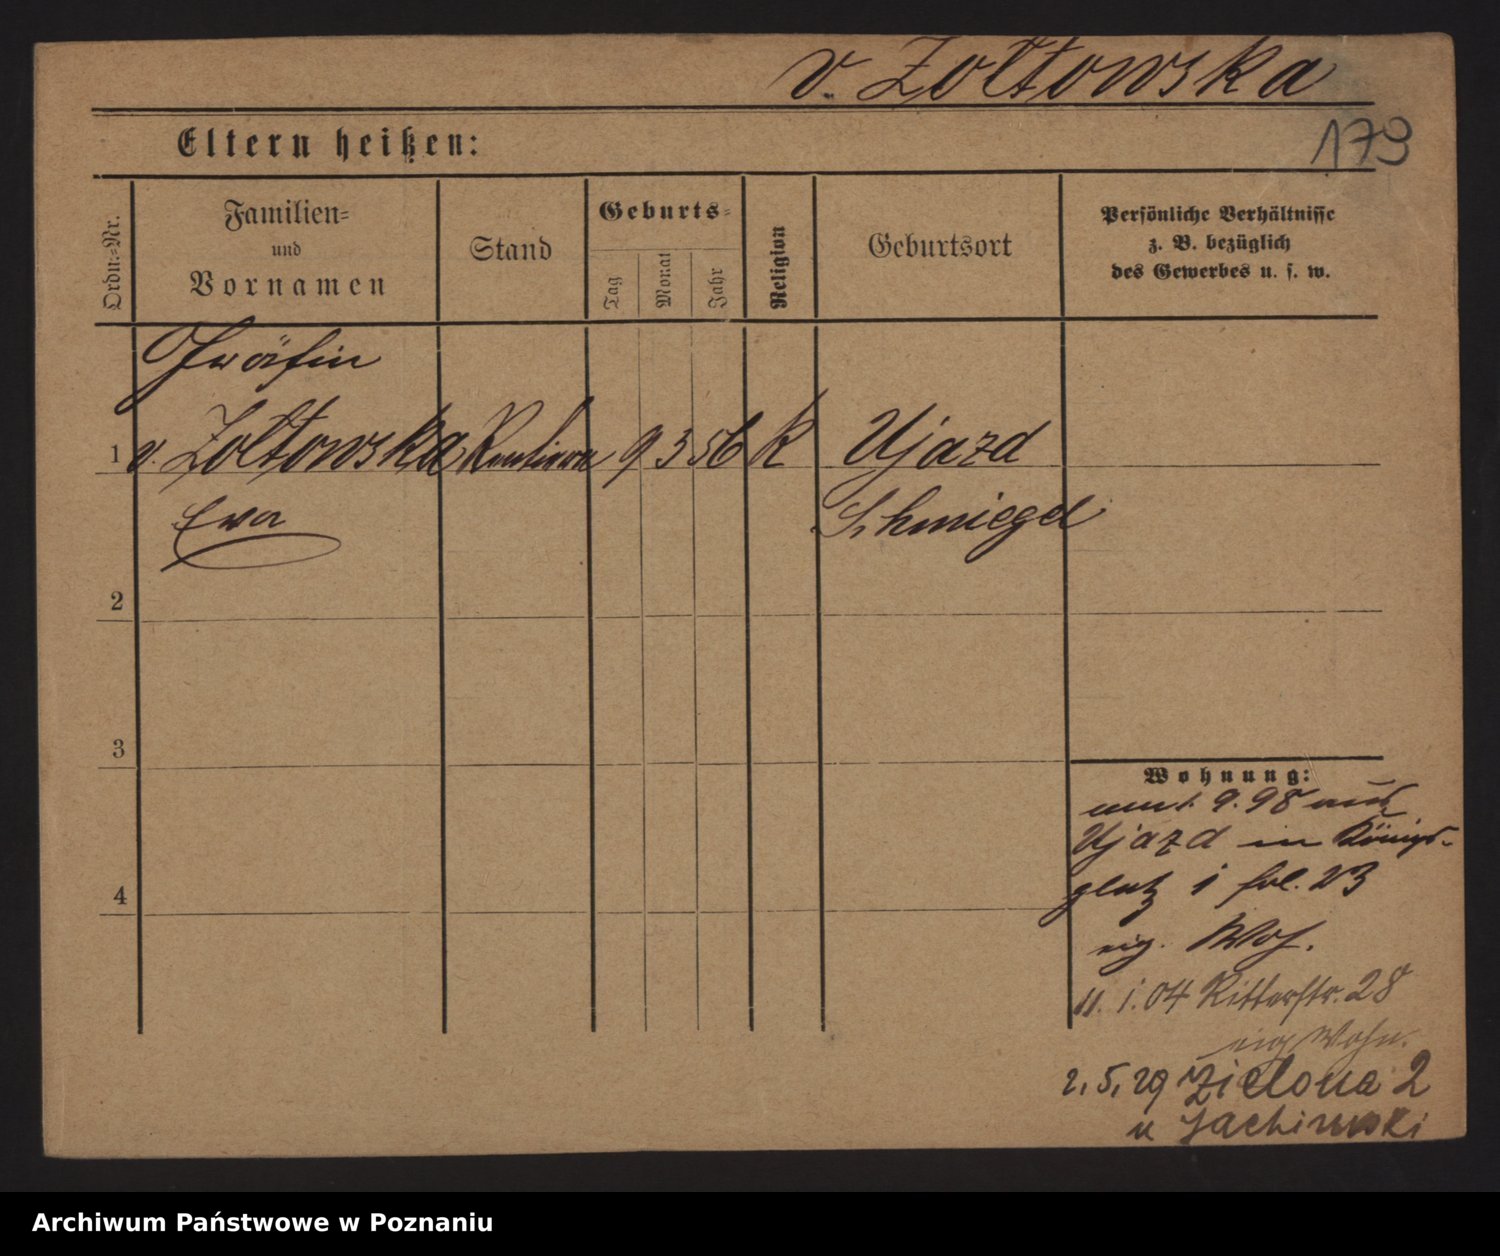 v. Zoltowska
173
Eltern heißen:
Ordn.=Nr.
Familien=
und
Vornamen
Stand
Geburts=
Tag
Monat
Jahr
Religion
Geburtsort
Persönliche Verhältnisse
z. B. bezüglich
des Gewerbes u. s. w.
Gräfin
1 v. Zoltowska Rentiere 9 3 56 K Ujazd
Eva Schmiegel
2
3
4
Wohnung:
9. 98 aus
Ujazd in Königs-
platz 23
eig. Woh.
11. 1. 04 Ritterstr. 28
eig Wohn.
2. 5. 29 Zielona 2
u Jachimski
Archiwum Państwowe w Poznaniu